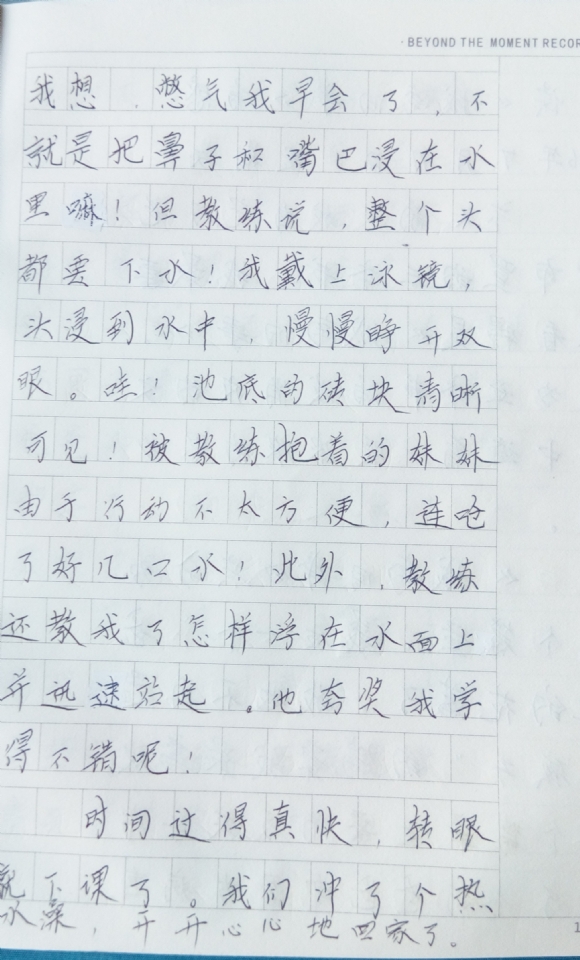 ·BEYOND THE MOMENT RECOR
我想，憋气我早会了，不
就是把鼻子和嘴巴浸在水
里嘛！但教练说，整个头
都要下水！我戴上泳镜，
头浸到水中，慢慢睁开双
眼。哇！池底的砖块清晰
可见！被教练抱着的妹妹
由于行动不太方便，连呛
了好几口水！此外，教练
还教我了怎样浮在水面上
并迅速站起。他夸奖我学
得不错呢！
时间过得真快，转眼
就下课了。我们冲了个热
水澡，开开心心地回家了。
1